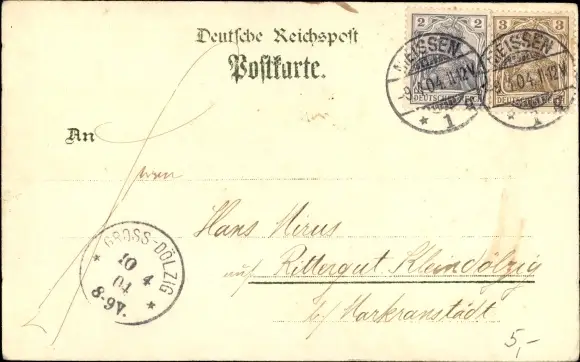 Deutsche Reichspost
Postkarte.
2 2
3 3
MEISSEN
MEISSEN
.04.11-12V.
.04.11-12V.
* 1
* 1
An
Herrn
Hans Mirus
auf Rittergut Kleindölzig
b/ Markranstädt
GROSS-DÖLZIG
10 4
04
8-9V.
5,-